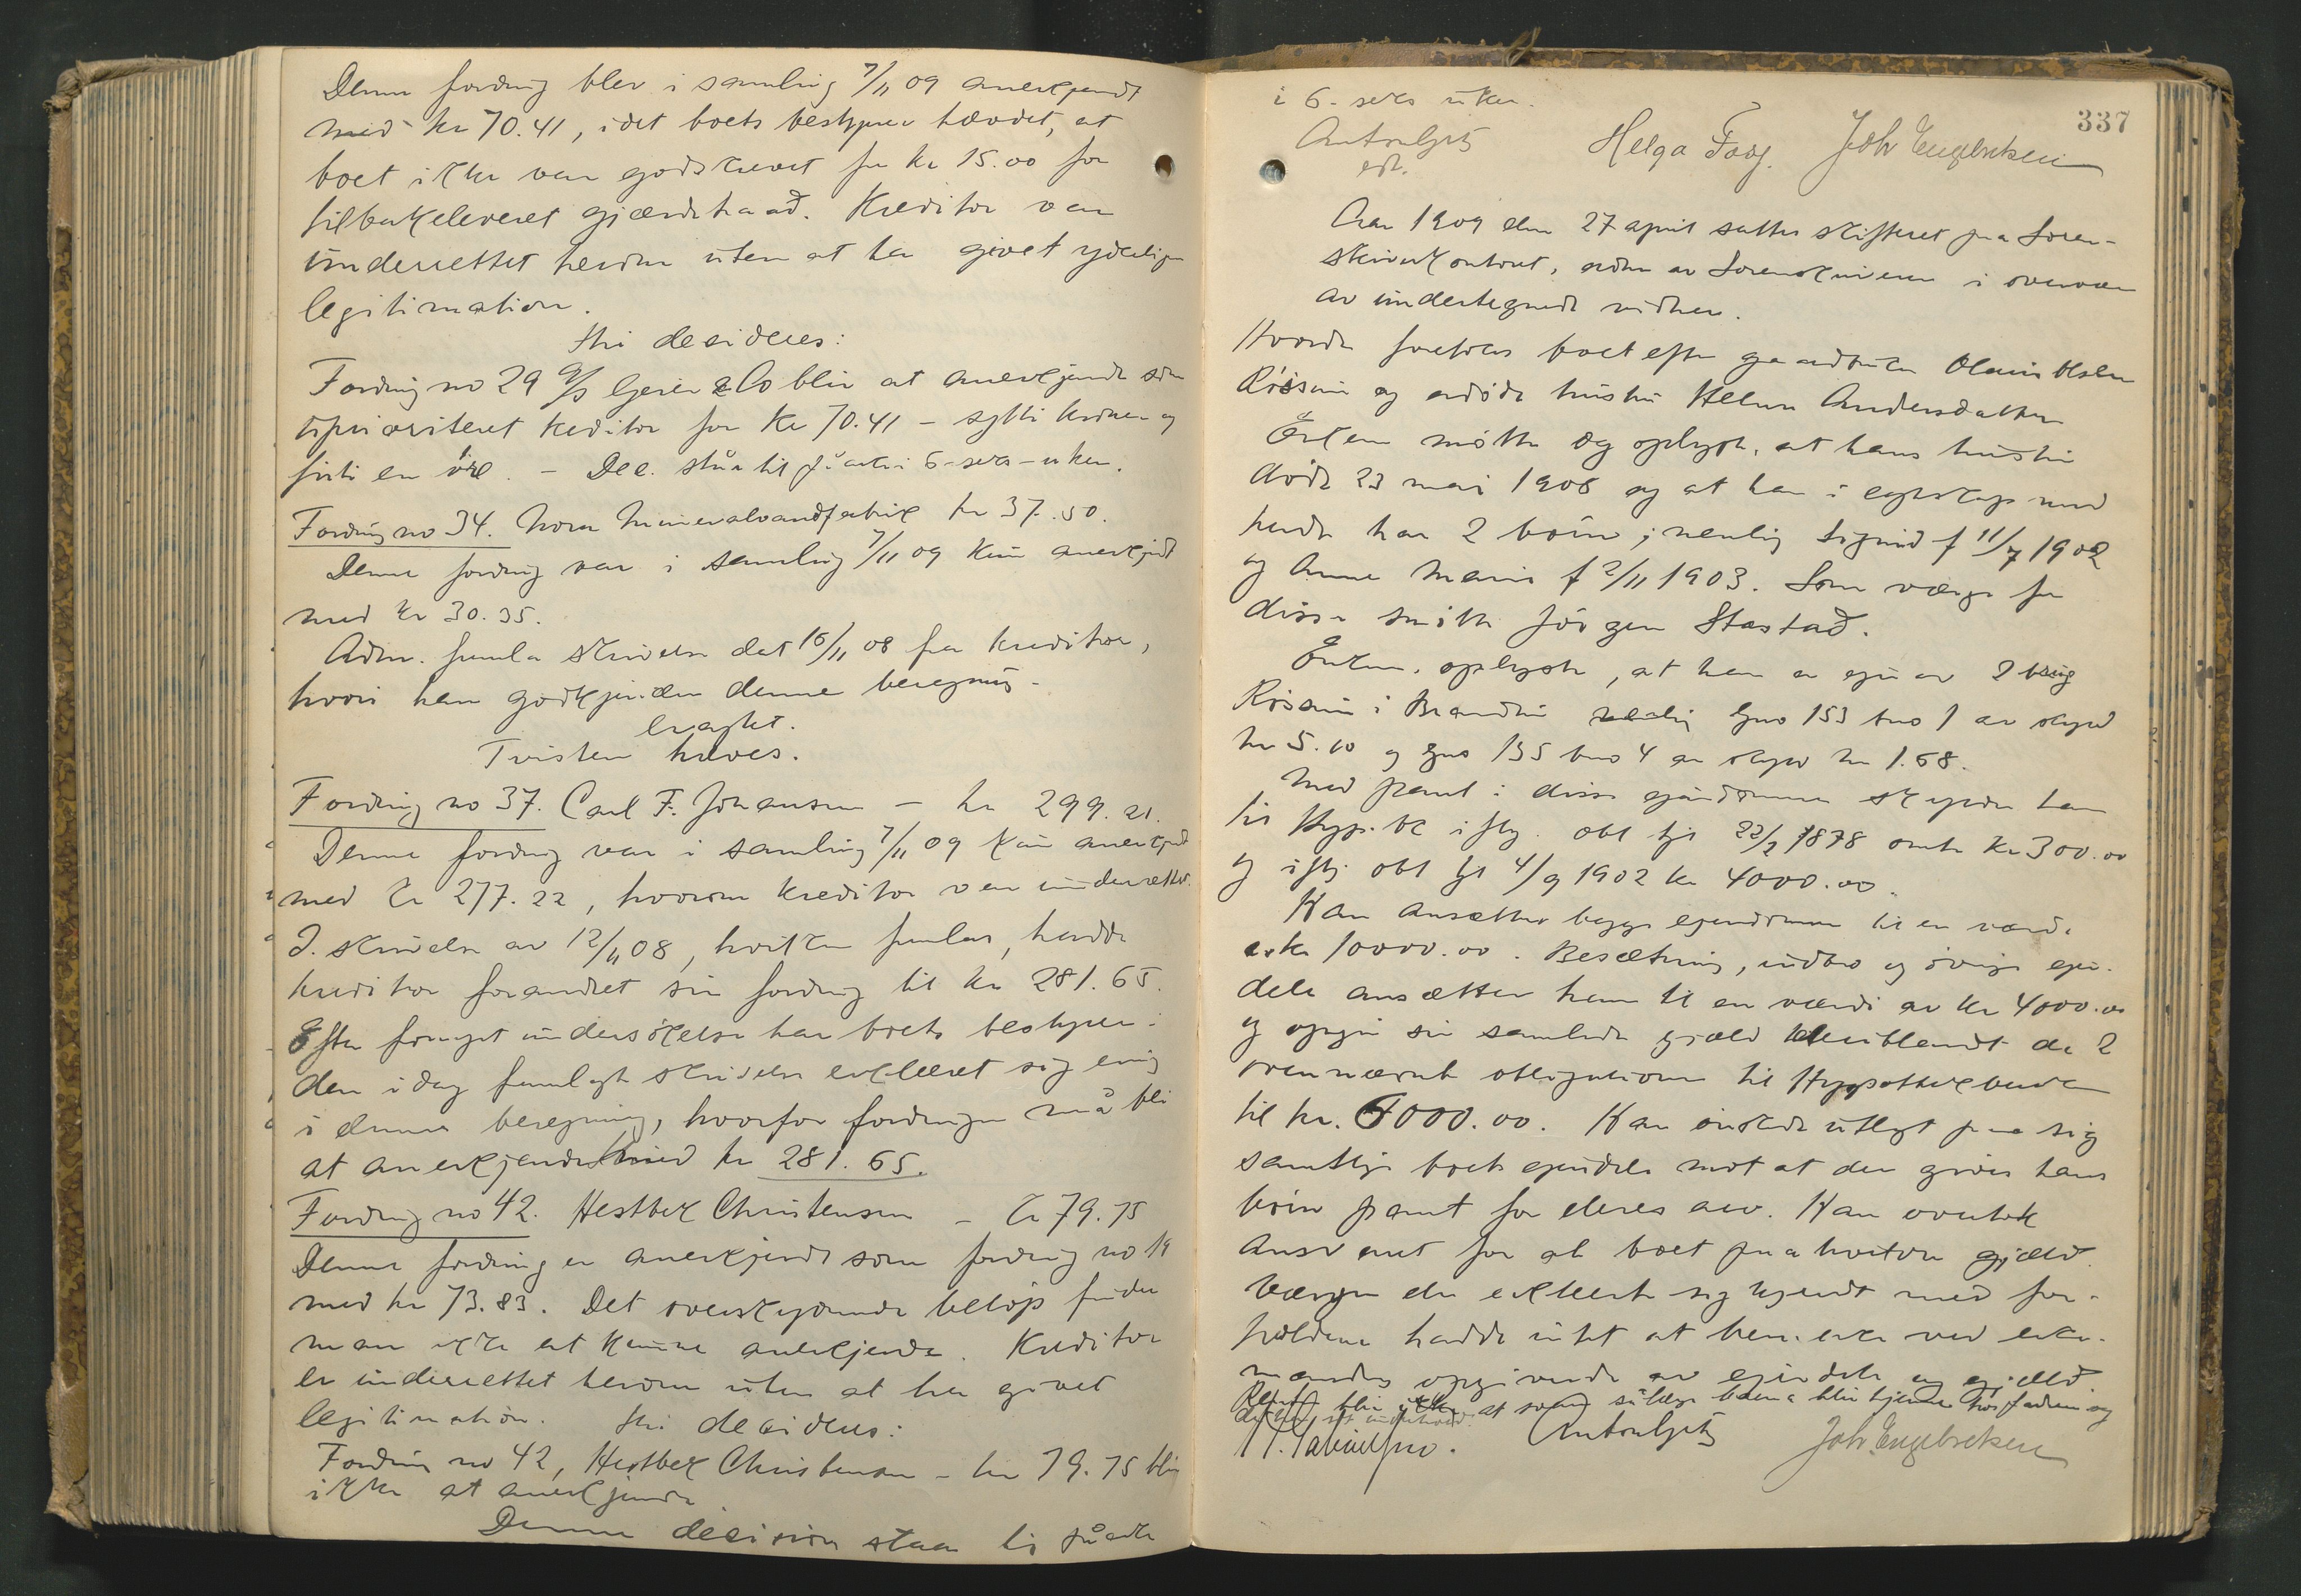 Denne fordring blev i samling 7/11 09 anerkjendt
med kr 70.41, idet boets bestyrer hævdet, at
boet ikke var godskrevet for kr 15.00 for
tilbakeleveret gjærdetraad. Kreditor var
underrettet herom uten at ha givet yderligere
legitimation.
Thi desideres:
Fordring no 29 & Co blir at anerkjende som
uprioriteret kreditor for kr 70.41 - sytti kroner og
firti en öre. - Dec. står til påanke i 6-seks-uker.
Fordring no 34. Mineralvandfabrik kr 37.50.
Denne fordring var i samling 7/11 09 kun anerkjendt
med kr 30.35.
Adm. fremla skrivelse dat 16/11 08 fra kreditor,
hvori han godkjender denne beregning.
Tvisten hæves.
Fordring no 37. Carl F. Johansen - kr 299.21.
Denne fordring var i samling 7/11 09 kun anerkjendt
med kr 277.22, hvorom kreditor var underrettet.
I skrivelse av 12/11 08, hvilken fremlas, hadde
kreditor forandret sin fordring til kr 281.65.
Efter fornyet undersökelse har boets bestyrer i
den idag fremlagte skrivelse erklæret sig enig
i denne beregning, hvorfor fordringen må bli
at anerkjende med kr 281.65.
Fordring no 42. Hestbek Christensen - kr 79.75
Denne fordring er anerkjendt som fordring no 14
med kr 73.83. Det overskytende belöp finder
man ikke at kunne anerkjende. Kreditor
er underrettet herom uten at ha givet
legitimation. Thi desideres:
Fordring no 42, Hestbek Christensen - kr 79.75 blir
ikke at anerkjende
Denne decision staar til påanke
337
i 6-seks uker.
Helga Joh Engebretsen
Aar 1909 den 27 april sattes skifteret paa Soren-
skriverkontoret, adm av Sorenskriveren i overvær
av undertegnede vidner.
Hvorda foretoges boet efter gaardbruker Olaus Olsen
Rösum og avdöde hustru Helene Andersdatter
Enkem. mötte og oplyste, at hans hustru
döde 23 mai 1908 og at han i egteskap med
hende har 2 börn; nemlig Sigrid f 11/7 1902
og Anne Marie f 2/11 1903. Som værge for
disse mötte Jörgen Stastad.
Enkem. oplyste, at han er eier av 2 brug
Rösum i Brandbu nemlig gno 153 bno 1 av skyld
kr 5.10 og gno 155 bno 4 av skyld kr 1.68.
Med pant i disse eiendomme skylder han
til Hyp.bk iflg. obl tgl 22/2 1878 kr 300.00
og iflg obl tgl 4/9 1902 kr 4000.00.
Han ansætter begge eiendomme til en værdi
av kr 10000.00. Besætning, indbo og övrige eien-
dele ansætter han til en værdi av kr 4000.00
og opgir sin samlede gjæld heriblandt de 2
ovennævnte obligationer til Hypothekbanken
til kr. 6000.00. Han önskede utlagt paa sig
samtlige boets eiendele mot at der gives hans
börn pant for deres arv. Han overtok
ansvaret for al boet paahvilende gjæld.
Værgen der erklærte sig kjendt med for-
holdene hadde intet at bemerke ved enke-
mandens opgivende av eiendele og gjæld.
at saalænge barna blir hjemme hos faderen og
Joh. Engebretsen